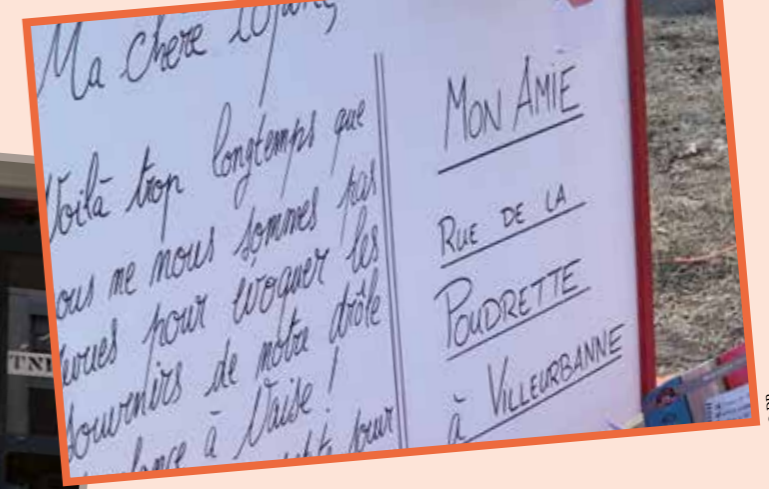 Ma chère
Voilà trop longtemps que
nous ne nous sommes pas
vues pour évoquer les
souvenirs de notre drôle
à Vaise !
MON AMIE
RUE DE LA
POUDRETTE
à VILLEURBANNE
TN